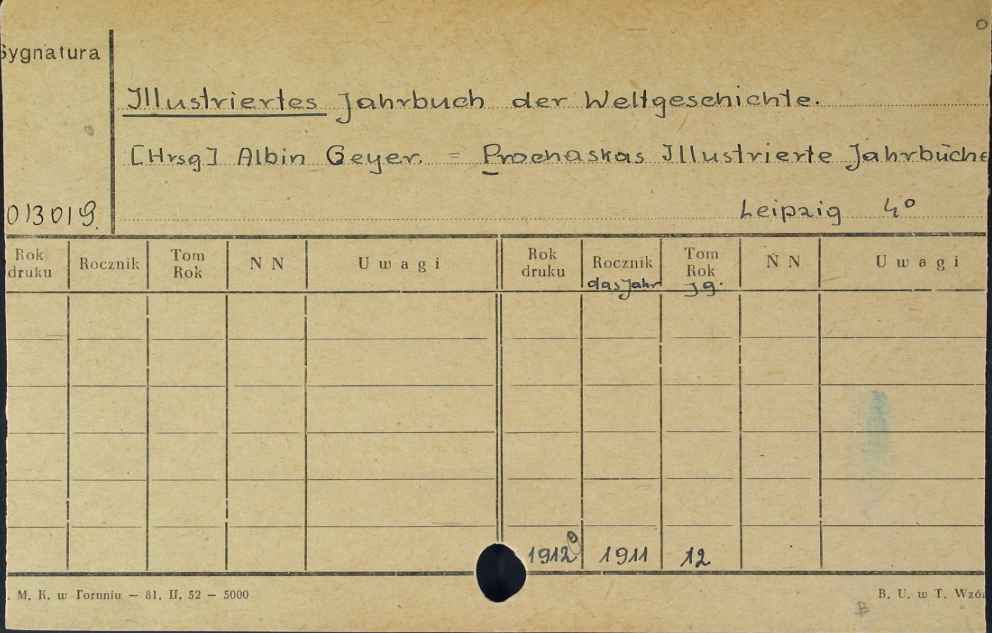 Sygnatura
Illustriertes Jahrbuch der Weltgeschichte.
[Hrsg] Albin Geyer. = Prochaskas Illustrierte Jahrbüche
013019.
Leipzig 4°
Rok druku Rocznik Tom Rok N N Uwagi Rok druku Rocznik Tom Rok N N Uwagi
das Jahr Jg.
1912 1911 12
. M. K. w Toruniu — 81. II. 52 — 5000
B. U. w T. Wzó
B